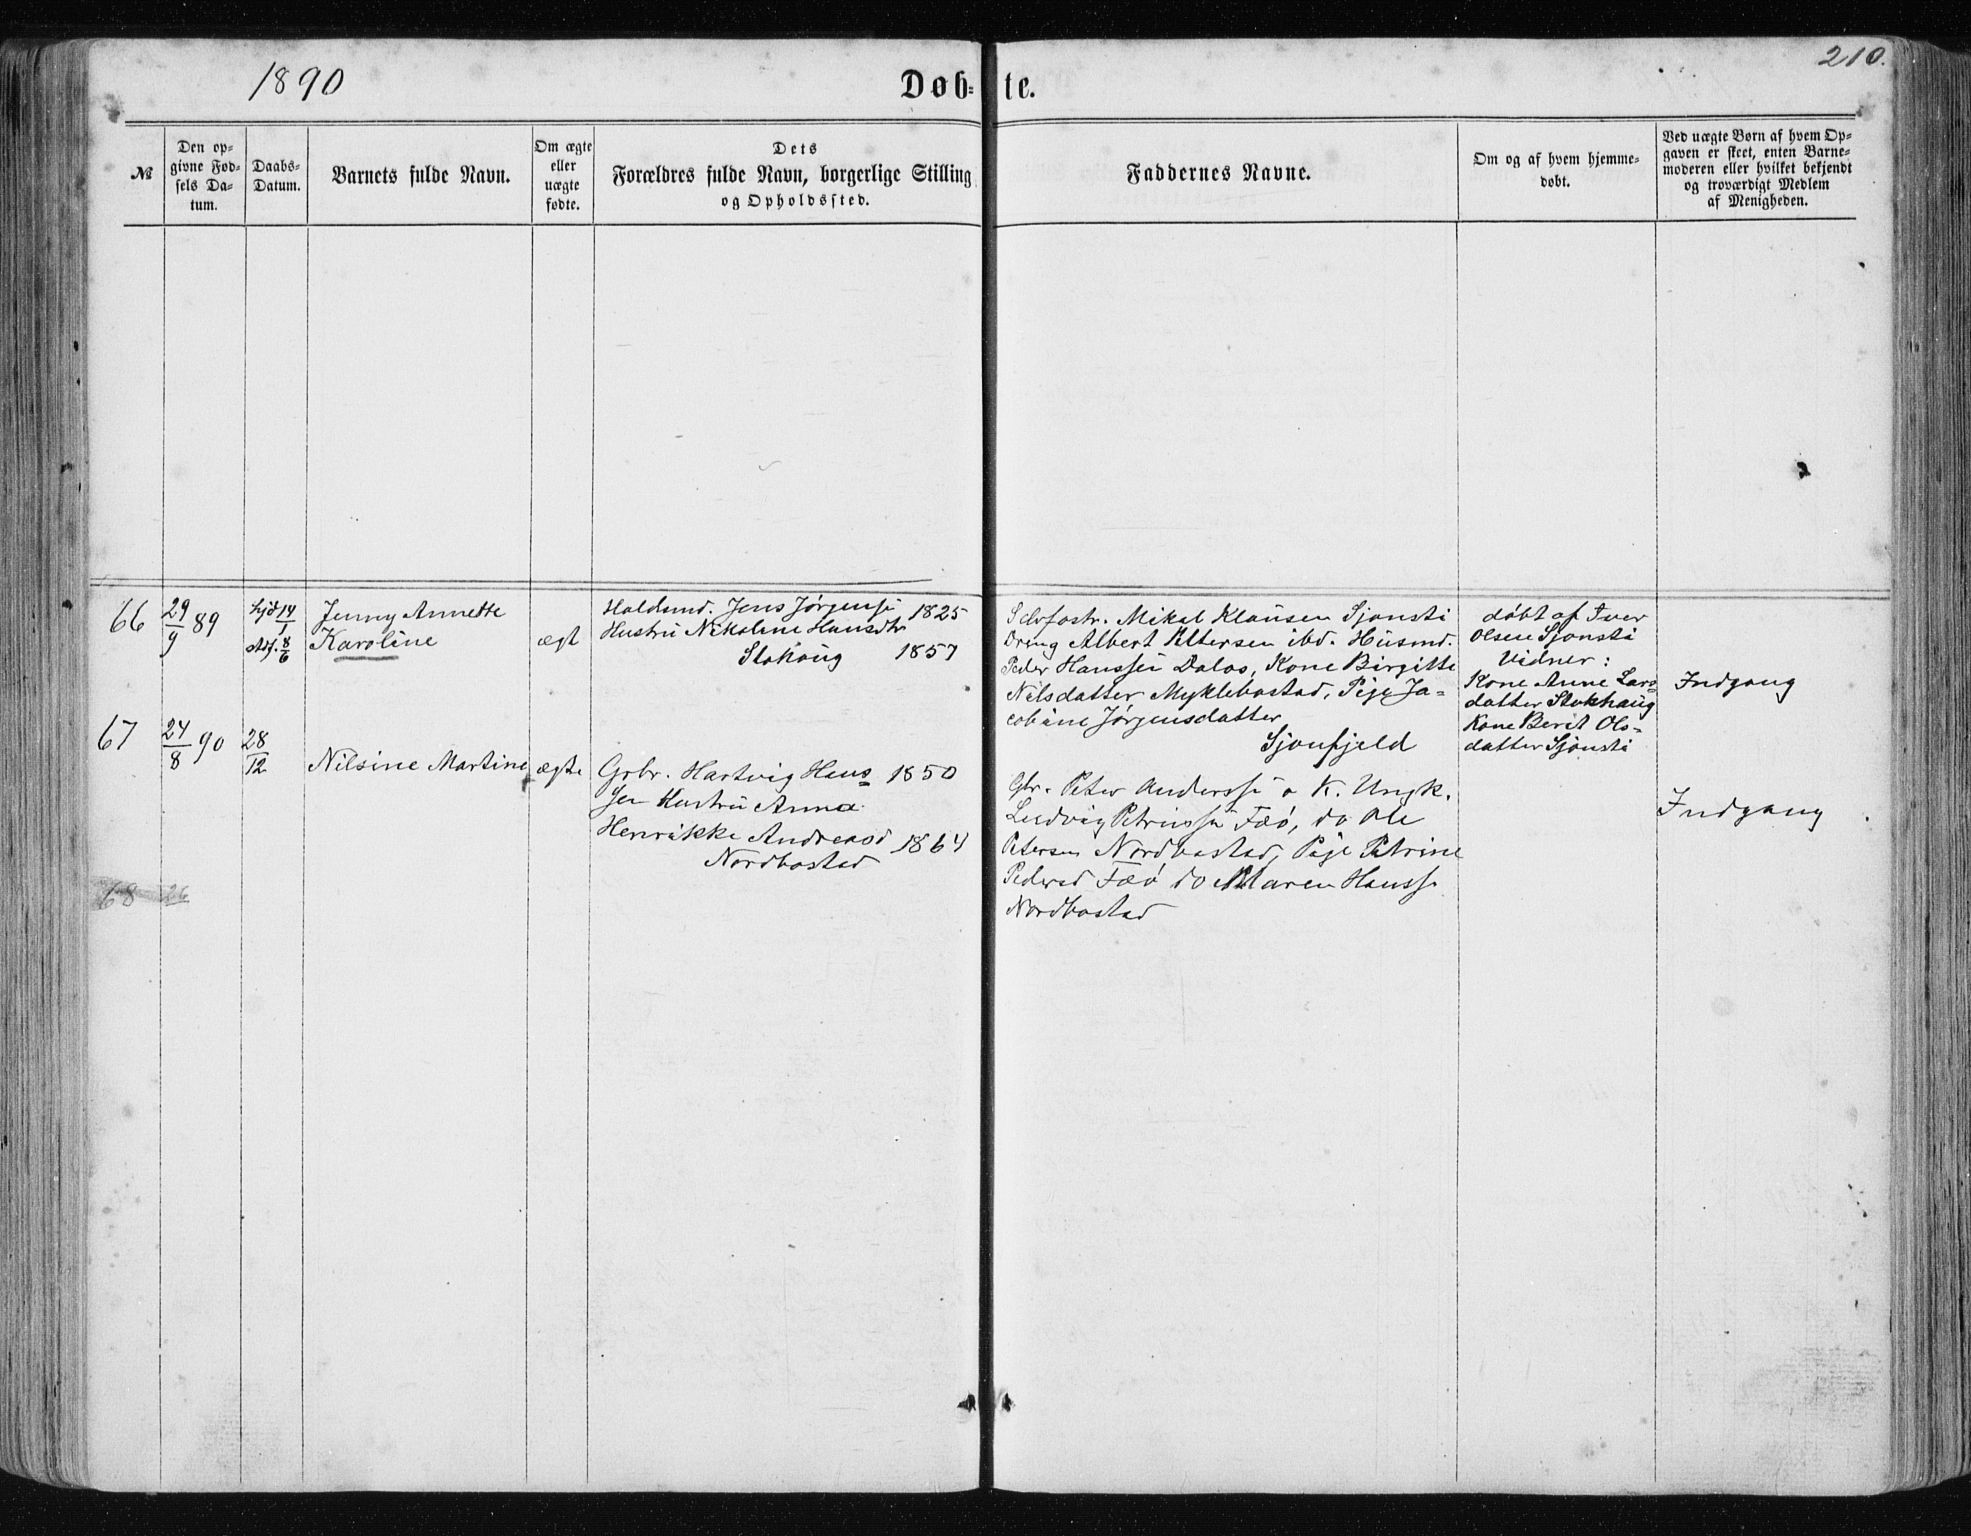 1890
Døb-te.
210.
№
Den op-
givne Fød-
sels Da-
tum.
Daabs-
Datum.
Barnets fulde Navn.
Om ægte
eller
uægte
fødte.
Dets
Forældres fulde Navn, borgerlige Stilling
og Opholdssted.
Faddernes Navne.
Om og af hvem hjemme-
døbt.
Ved uægte Børn af hvem Op-
gaven er skeet, enten Barne-
moderen eller hvilket bekjendt
og troværdigt Medlem
af Menigheden.
66
29/9 89
hjd 14/1
8/6
Jenny Annette
Karoline
ægt
Jens Jørgense 1825
Hustru Nikoline Hansdtr
Stokaug 1857
Mikal Klausen Sjonsti
Dreng Albert Pettersen ibd. Husmd.
Peder Hanssen Dalos, Kone Birgitte
Nilsdatter Myklebostad, Pige Ja-
cobine Jørgensdatter
Sjonfjeld
døbt af Iver
Olsen Sjonsti
Vidner:
Kone Anne Lars-
datter Stokhaug
Kone Berit Ols-
datter Sjonsti
Indgang
67
24/8 90
28/12
Nilsine Martine
ægte
Grbr. Hartvig Hans- 1850
sen Hustru Anna
Henrikke Andreasd 1864
Nordbostad
Gbr. Peter Anderss o K. Ungk.
Ludvig Petrinss Fæø, do Ole
Petersen Nordbostad, Pige Petrine
Pedersd Fæø do Maren Hanss
Nordbostad
Indgang
68
26